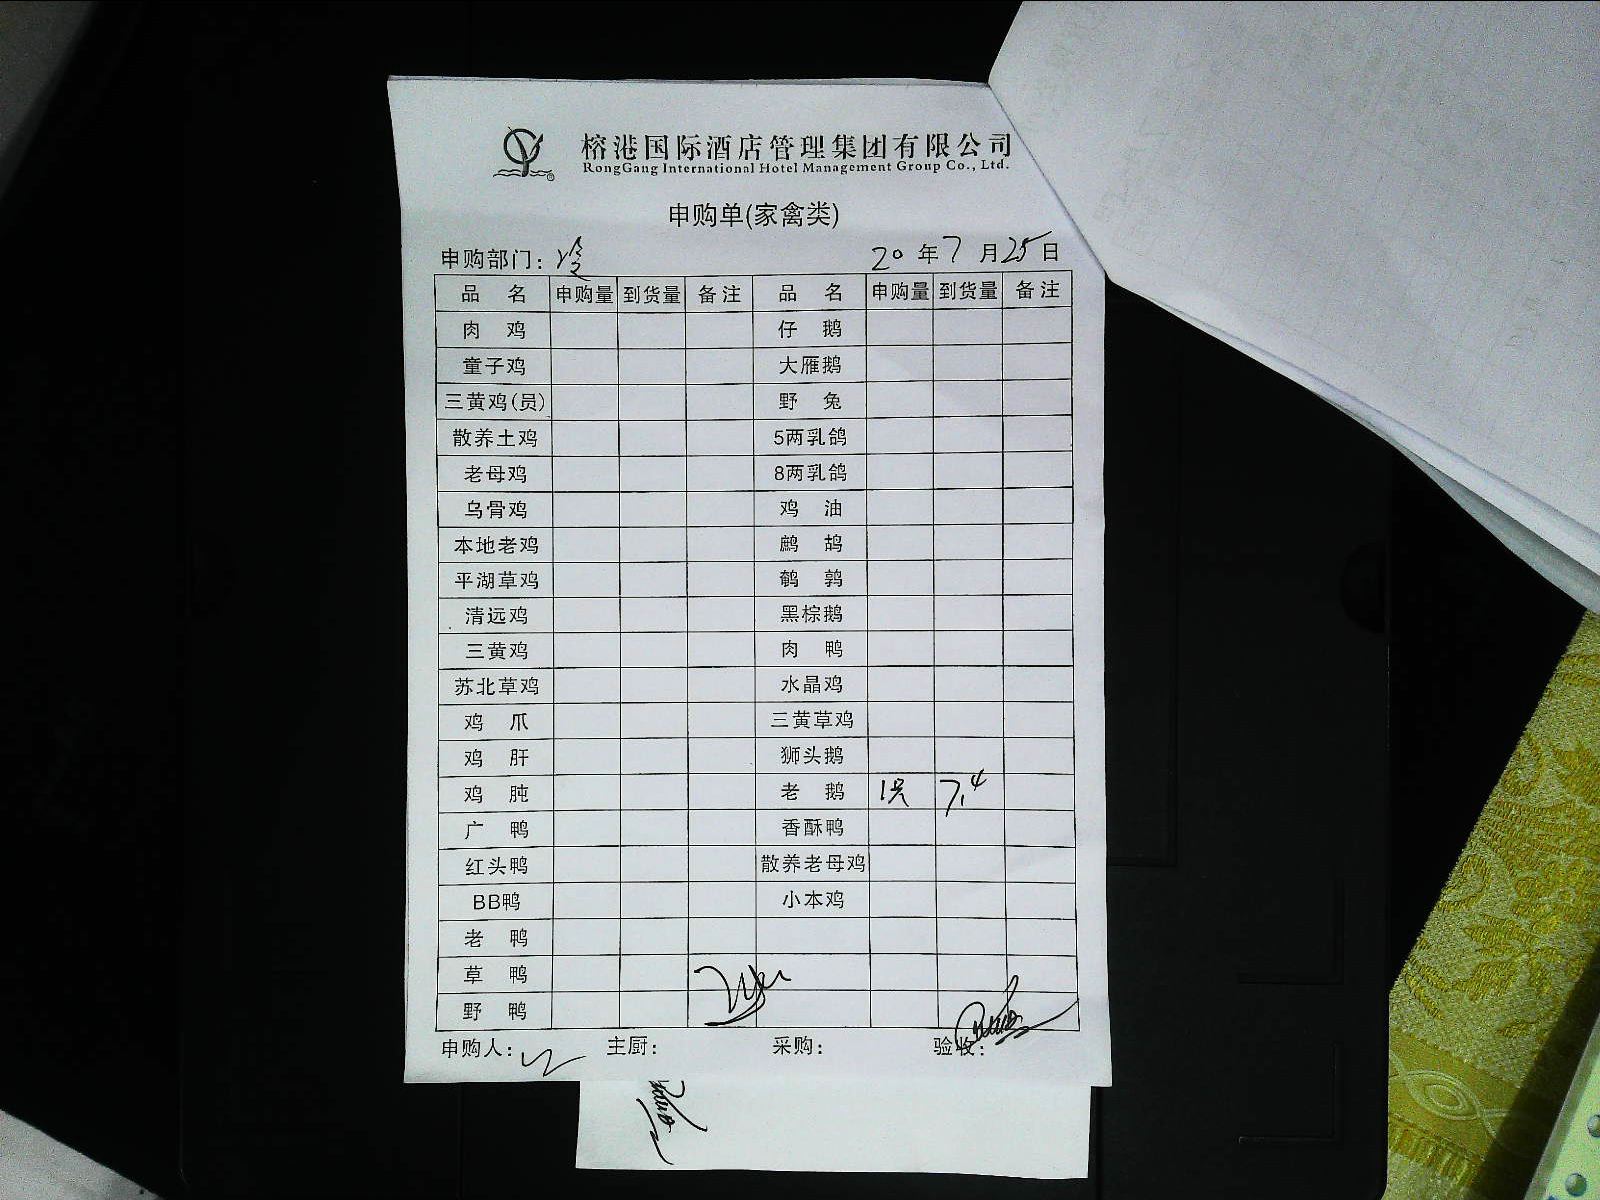 榕港国际酒店管理集团有限公司
RongGang International Hotel Management Group Co., Ltd.
申购单(家禽类)
申购部门：冷 20 年 7 月 25 日
品 名 申购量 到货量 备注 品 名 申购量 到货量 备注
肉 鸡 仔 鹅
童子鸡 大雁鹅
三黄鸡(员) 野 兔
散养土鸡 5两乳鸽
老母鸡 8两乳鸽
乌骨鸡 鸡 油
本地老鸡 鹧 鸪
平湖草鸡 鹌 鹑
清远鸡 黑棕鹅
三黄鸡 肉 鸭
苏北草鸡 水晶鸡
鸡 爪 三黄草鸡
鸡 肝 狮头鹅
鸡 肫 老 鹅 1只 7.4
广 鸭 香酥鸭
红头鸭 散养老母鸡
BB鸭 小本鸡
老 鸭
草 鸭
野 鸭
申购人： 主厨： 采购： 验收：